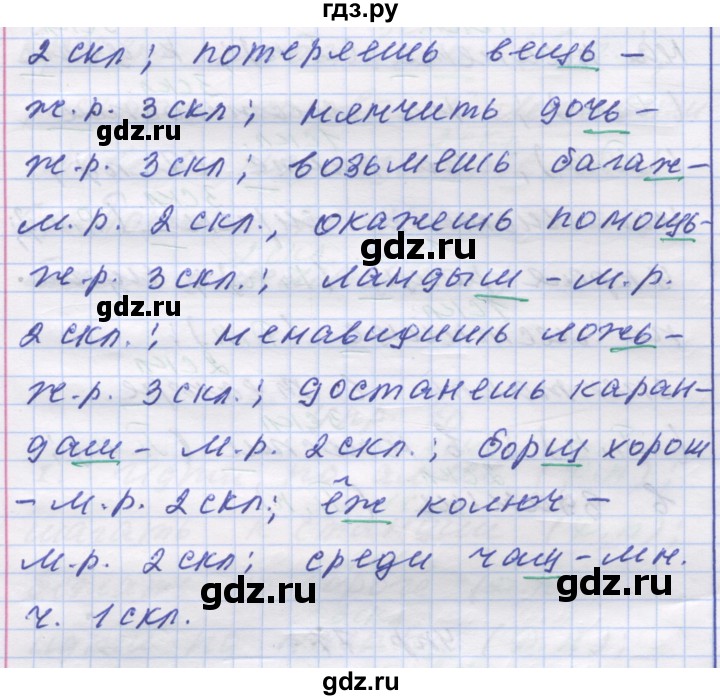 гдз.ру
2 скл; потеряешь вещь –
ж.р. 3 скл; нянчить дочь –
gdz.ru
gdz.ru
ж.р. 3 скл; возьмешь багаж –
м.р. 2 скл., окажешь помощь-
gdz.ru
ж.р. 3 скл.; ландыш – м.р.
gdz.ru
2 скл.; ненавидишь ложь –
ж.р. 3 скл.; достанешь каран-
даш – м.р. 2 скл.; борщ хорош
gdz.ru
gdz.ru
– м.р. 2 скл; ёж колюч –
м.р. 2 скл; среди чащ – мн.
gdz.ru
gdz.ru
ч. 1 скл.
gdz.ru